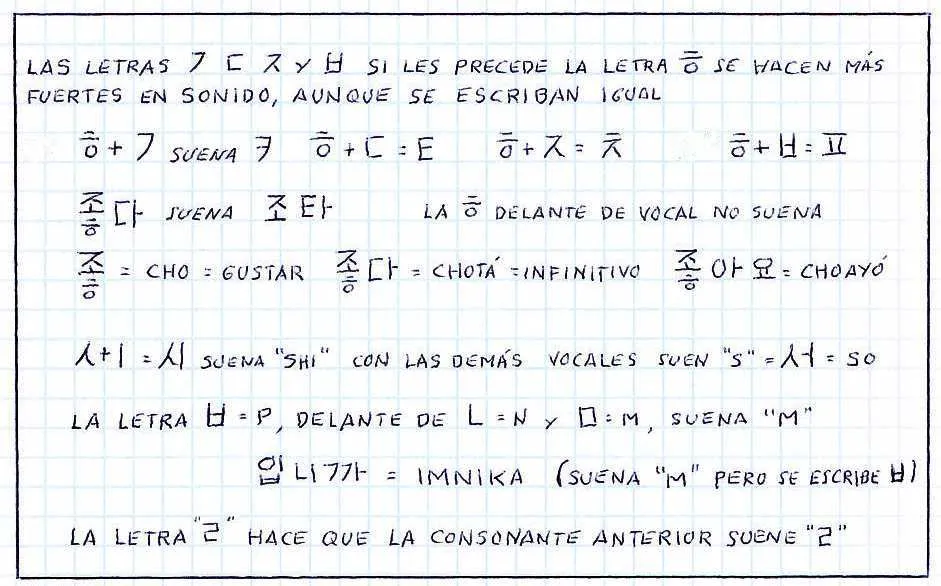 LAS LETRAS ㄱ ㄷ ㅈ Y ㅂ SI LES PRECEDE LA LETRA ㅎ SE HACEN MÁS
FUERTES EN SONIDO, AUNQUE SE ESCRIBAN IGUAL
ㅎ + ㄱ SUENA ㅋ ㅎ + ㄷ = ㅌ ㅎ + ㅈ = ㅊ ㅎ + ㅂ = ㅍ
좋다 SUENA 조타 LA ㅎ DELANTE DE VOCAL NO SUENA
좋 = CHO = GUSTAR 좋다 = CHOTÁ = INFINITIVO 좋아요 = CHOAYÓ
ㅅ + ㅣ = 시 SUENA "SHI" CON LAS DEMÁS VOCALES SUEN "S" = 서 = SO
LA LETRA ㅂ = P, DELANTE DE ㄴ = N Y ㅁ = M, SUENA "M"
입니까 = IMNIKA (SUENA "M" PERO SE ESCRIBE ㅂ)
LA LETRA "ㄹ" HACE QUE LA CONSONANTE ANTERIOR SUENE "ㄹ"